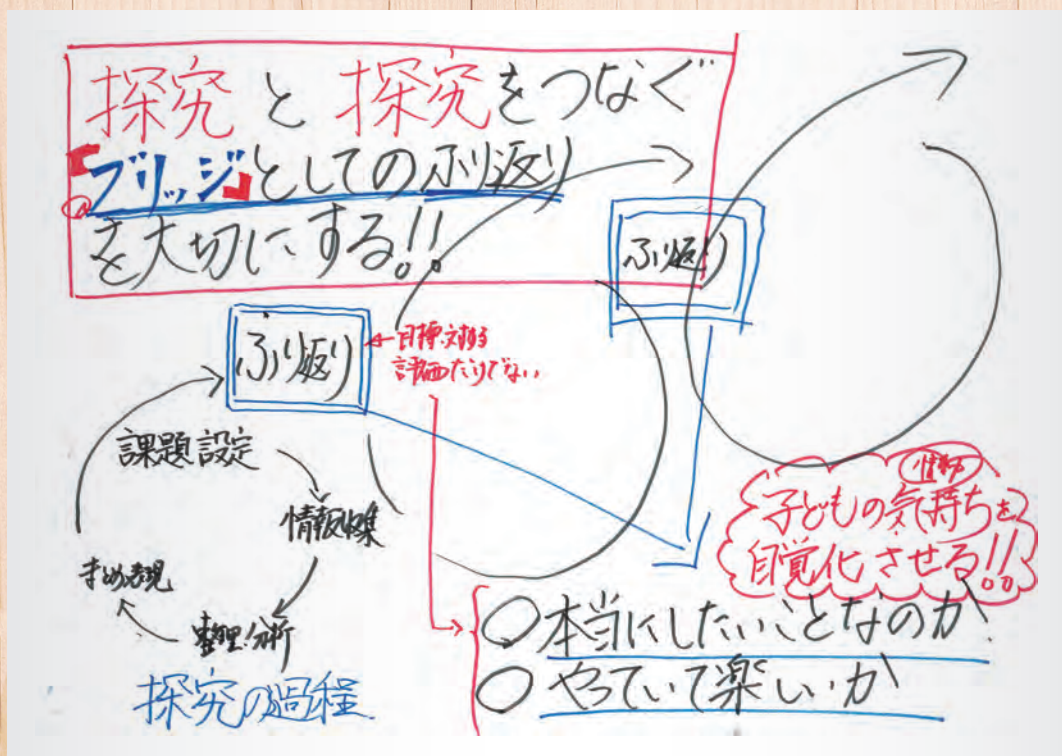 探究と探究をつなぐ
「ブリッジ」としてのふり返り
を大切にする!!
ふり返り
ふり返り
←目標に対する
評価だけでない
課題設定
情報収集
整理・分析
まとめ・表現
探究の過程
子どもの気持ちを
自覚化させる!!
○本当にしたいことなのか
○やっていて楽しいか